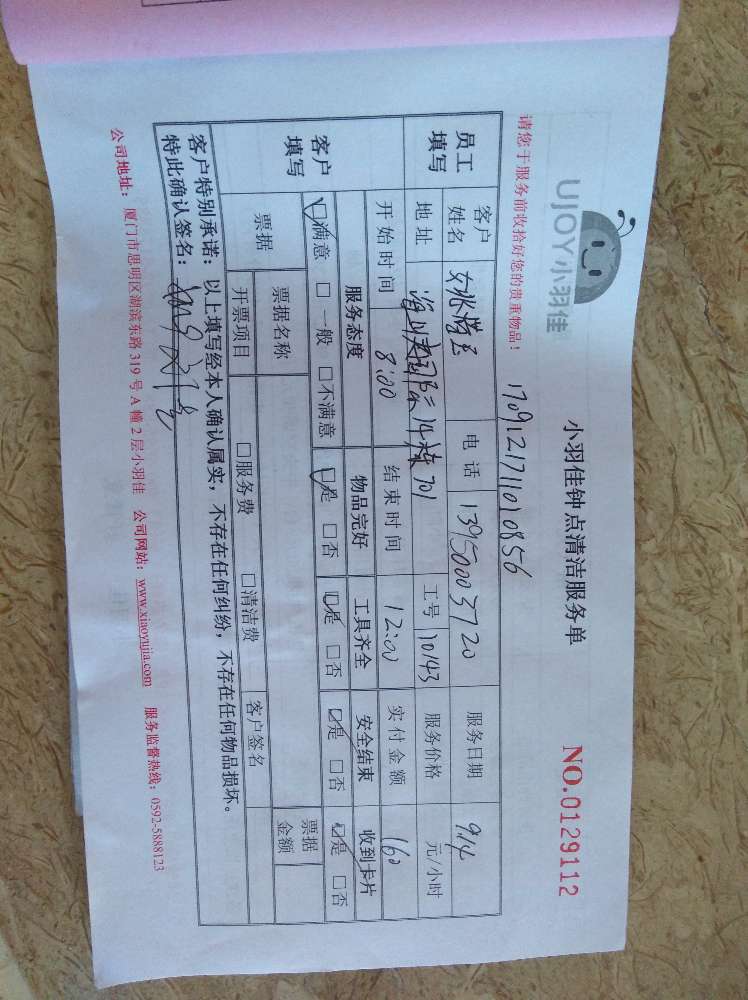 UJOY小羽佳
小羽佳钟点清洁服务单
NO.0129112
请您于服务前收拾好您的贵重物品！
1709121711010856
员工填写 客户姓名 电话 13950003720 服务日期 9.14
地址 14栋 701 工号 10143 服务价格 元/小时
开始时间 8:00 结束时间 12:00 实付金额 160
客户填写 服务态度 物品完好 工具齐全 安全结束 收到卡片
☑满意 □一般 □不满意 ☑是 □否 ☑是 □否 ☑是 □否 ☑是 □否
票据 票据名称 票据金额
开票项目 □服务费 □清洁费 客户签名
客户特别承诺：以上填写经本人确认属实，不存在任何纠纷，不存在任何物品损坏。
特此确认签名：
公司地址：厦门市思明区湖滨东路 319 号 A 幢 2 层小羽佳 公司网站：www.xiaoyujia.com 服务监督热线：0592-5888123